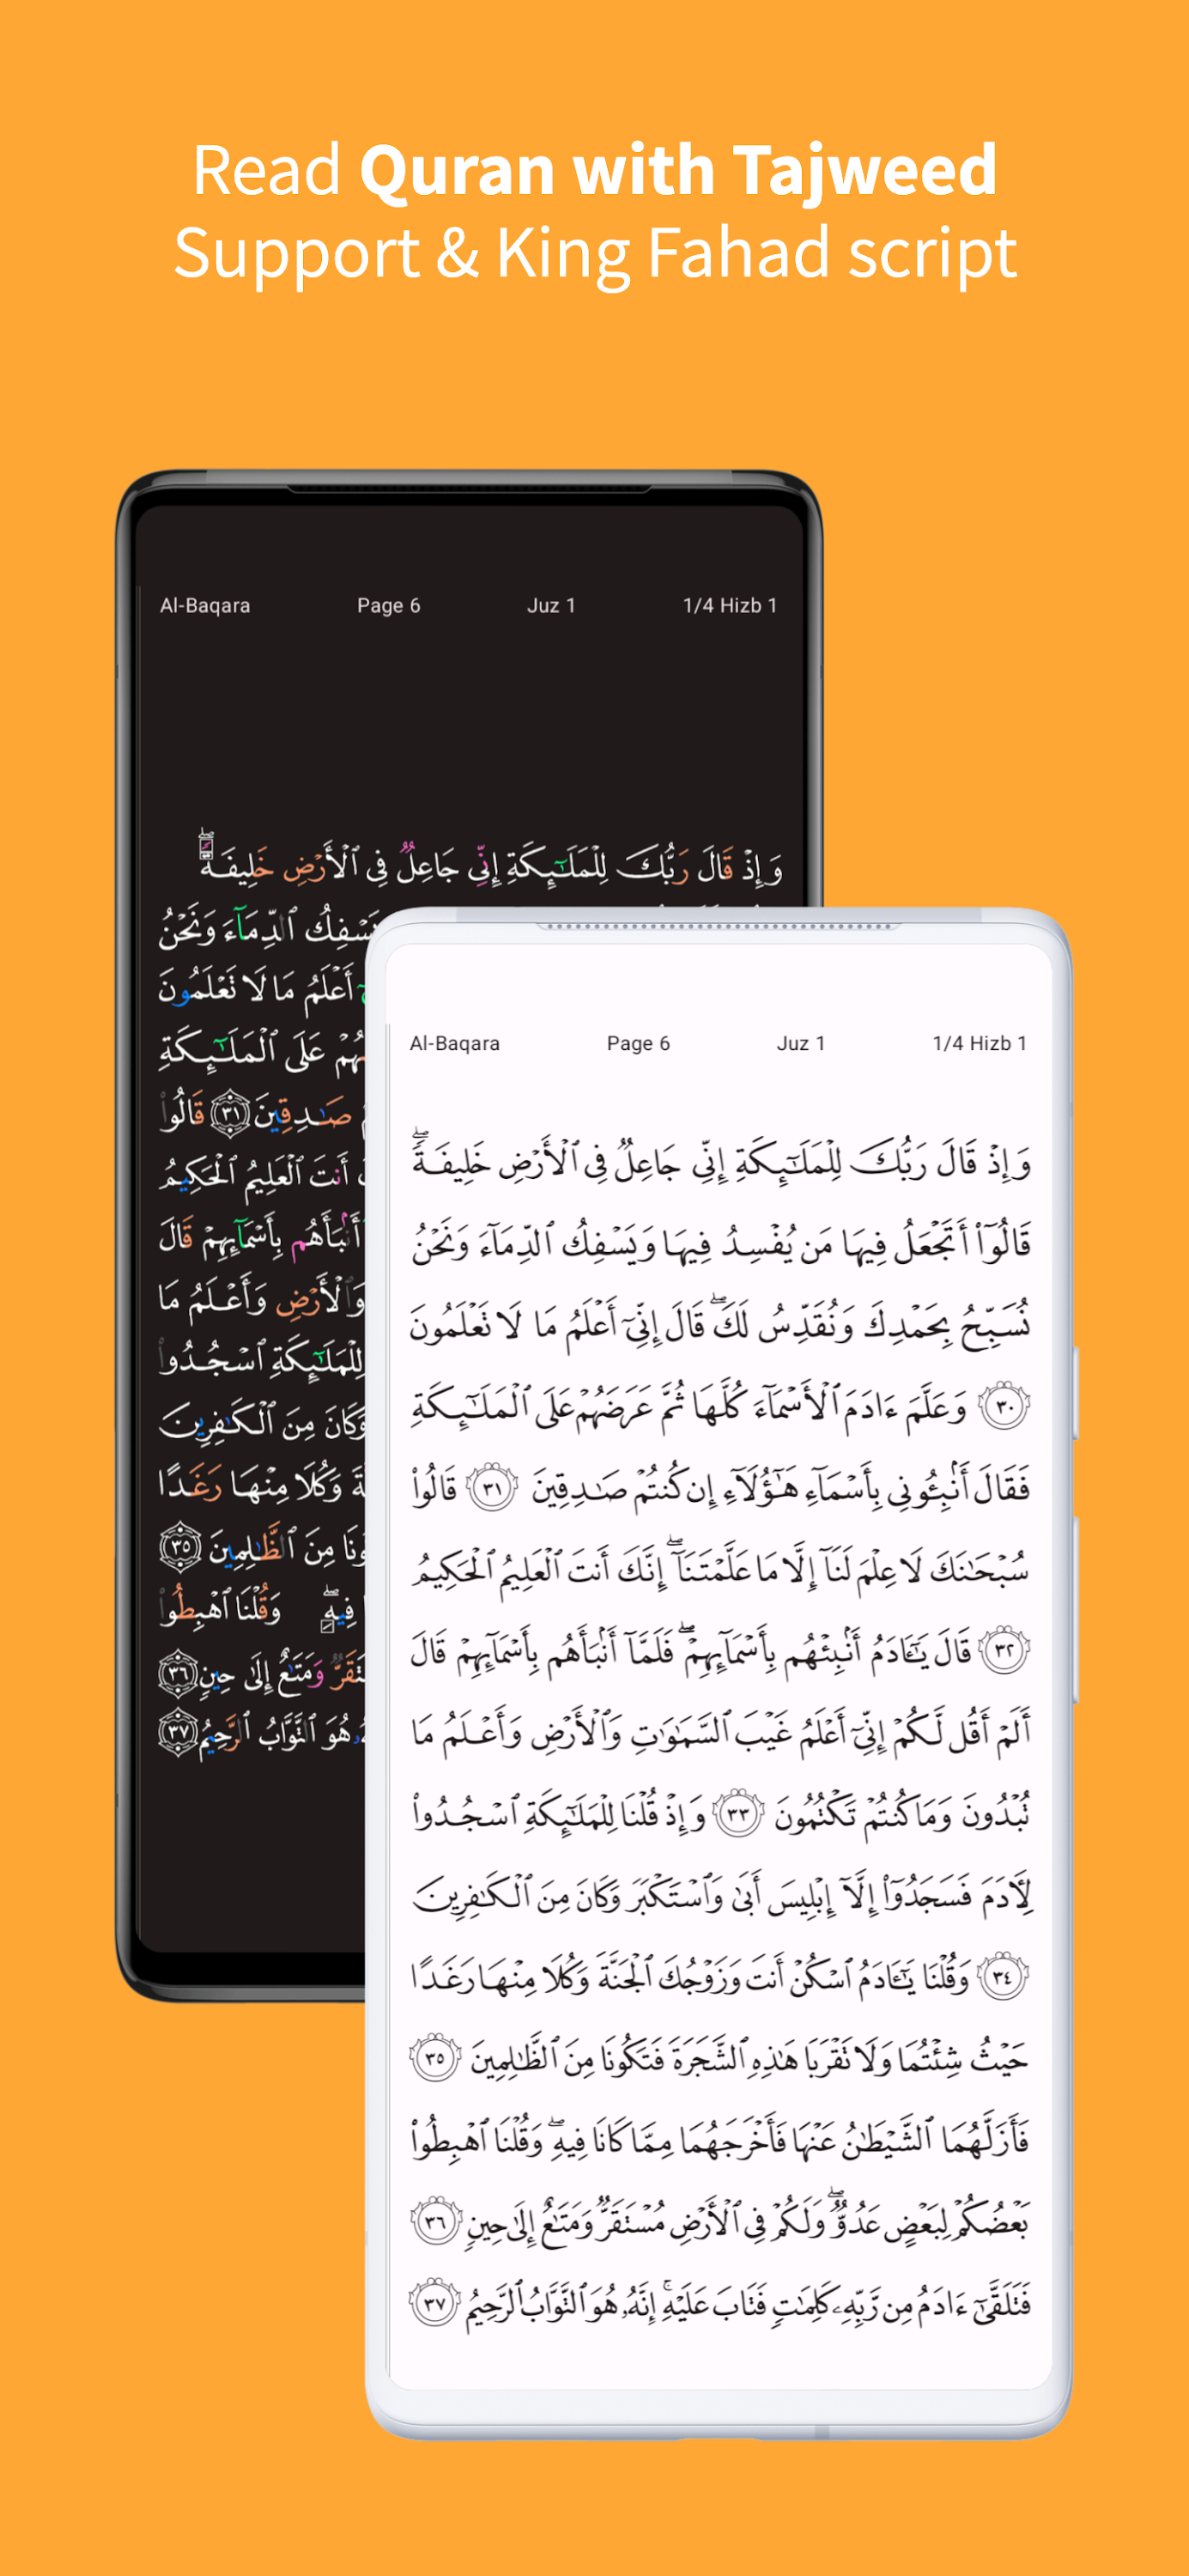 Read Quran with Tajweed
Support & King Fahad script
Al-Baqara Page 6 Juz 1 1/4 Hizb 1
وَإِذْ قَالَ رَبُّكَ لِلْمَلَـٰٓئِكَةِ إِنِّى جَاعِلٌ فِى ٱلْأَرْضِ خَلِيفَةً ۖ
يَسْفِكُ ٱلدِّمَآءَ وَنَحْنُ
أَعْلَمُ مَا لَا تَعْلَمُونَ
عَلَى ٱلْمَلَـٰٓئِكَةِ
صَـٰدِقِينَ ٣١ قَالُوا۟
أَنتَ ٱلْعَلِيمُ ٱلْحَكِيمُ
أَنۢبَأَهُم بِأَسْمَآئِهِمْ قَالَ
وَٱلْأَرْضِ وَأَعْلَمُ مَا
لِلْمَلَـٰٓئِكَةِ ٱسْجُدُوا۟
وَكَانَ مِنَ ٱلْكَـٰفِرِينَ
وَكُلَا مِنْهَا رَغَدًا
مِنَ ٱلظَّـٰلِمِينَ ٣٥
فِيهِ ۖ وَقُلْنَا ٱهْبِطُوا۟
وَمَتَـٰعٌ إِلَىٰ حِينٍ ٣٦
هُوَ ٱلتَّوَّابُ ٱلرَّحِيمُ ٣٧
Al-Baqara Page 6 Juz 1 1/4 Hizb 1
وَإِذْ قَالَ رَبُّكَ لِلْمَلَـٰٓئِكَةِ إِنِّى جَاعِلٌ فِى ٱلْأَرْضِ خَلِيفَةً ۖ
قَالُوٓا۟ أَتَجْعَلُ فِيهَا مَن يُفْسِدُ فِيهَا وَيَسْفِكُ ٱلدِّمَآءَ وَنَحْنُ
نُسَبِّحُ بِحَمْدِكَ وَنُقَدِّسُ لَكَ ۖ قَالَ إِنِّىٓ أَعْلَمُ مَا لَا تَعْلَمُونَ
٣٠ وَعَلَّمَ ءَادَمَ ٱلْأَسْمَآءَ كُلَّهَا ثُمَّ عَرَضَهُمْ عَلَى ٱلْمَلَـٰٓئِكَةِ
فَقَالَ أَنۢبِـُٔونِى بِأَسْمَآءِ هَـٰٓؤُلَآءِ إِن كُنتُمْ صَـٰدِقِينَ ٣١ قَالُوا۟
سُبْحَـٰنَكَ لَا عِلْمَ لَنَآ إِلَّا مَا عَلَّمْتَنَآ ۖ إِنَّكَ أَنتَ ٱلْعَلِيمُ ٱلْحَكِيمُ
٣٢ قَالَ يَـٰٓـَٔادَمُ أَنۢبِئْهُم بِأَسْمَآئِهِمْ ۖ فَلَمَّآ أَنۢبَأَهُم بِأَسْمَآئِهِمْ قَالَ
أَلَمْ أَقُل لَّكُمْ إِنِّىٓ أَعْلَمُ غَيْبَ ٱلسَّمَـٰوَٰتِ وَٱلْأَرْضِ وَأَعْلَمُ مَا
تُبْدُونَ وَمَا كُنتُمْ تَكْتُمُونَ ٣٣ وَإِذْ قُلْنَا لِلْمَلَـٰٓئِكَةِ ٱسْجُدُوا۟
لِـَٔادَمَ فَسَجَدُوٓا۟ إِلَّآ إِبْلِيسَ أَبَىٰ وَٱسْتَكْبَرَ وَكَانَ مِنَ ٱلْكَـٰفِرِينَ
٣٤ وَقُلْنَا يَـٰٓـَٔادَمُ ٱسْكُنْ أَنتَ وَزَوْجُكَ ٱلْجَنَّةَ وَكُلَا مِنْهَا رَغَدًا
حَيْثُ شِئْتُمَا وَلَا تَقْرَبَا هَـٰذِهِ ٱلشَّجَرَةَ فَتَكُونَا مِنَ ٱلظَّـٰلِمِينَ ٣٥
فَأَزَلَّهُمَا ٱلشَّيْطَـٰنُ عَنْهَا فَأَخْرَجَهُمَا مِمَّا كَانَا فِيهِ ۖ وَقُلْنَا ٱهْبِطُوا۟
بَعْضُكُمْ لِبَعْضٍ عَدُوٌّ ۖ وَلَكُمْ فِى ٱلْأَرْضِ مُسْتَقَرٌّ وَمَتَـٰعٌ إِلَىٰ حِينٍ ٣٦
فَتَلَقَّىٰٓ ءَادَمُ مِن رَّبِّهِۦ كَلِمَـٰتٍ فَتَابَ عَلَيْهِ ۚ إِنَّهُۥ هُوَ ٱلتَّوَّابُ ٱلرَّحِيمُ ٣٧